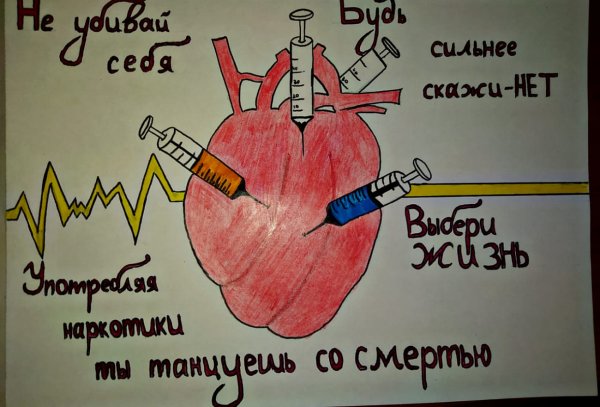 Не убивай
себя
Будь
сильнее
скажи-НЕТ
Выбери
ЖИЗНЬ
Употребляя
наркотики
ты танцуешь со смертью